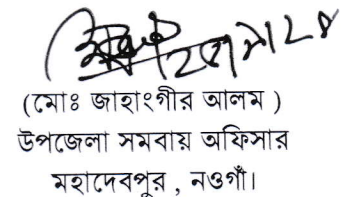 (মোঃ জাহাংগীর আলম )
উপজেলা সমবায় অফিসার
মহাদেবপুর , নওগাঁ।